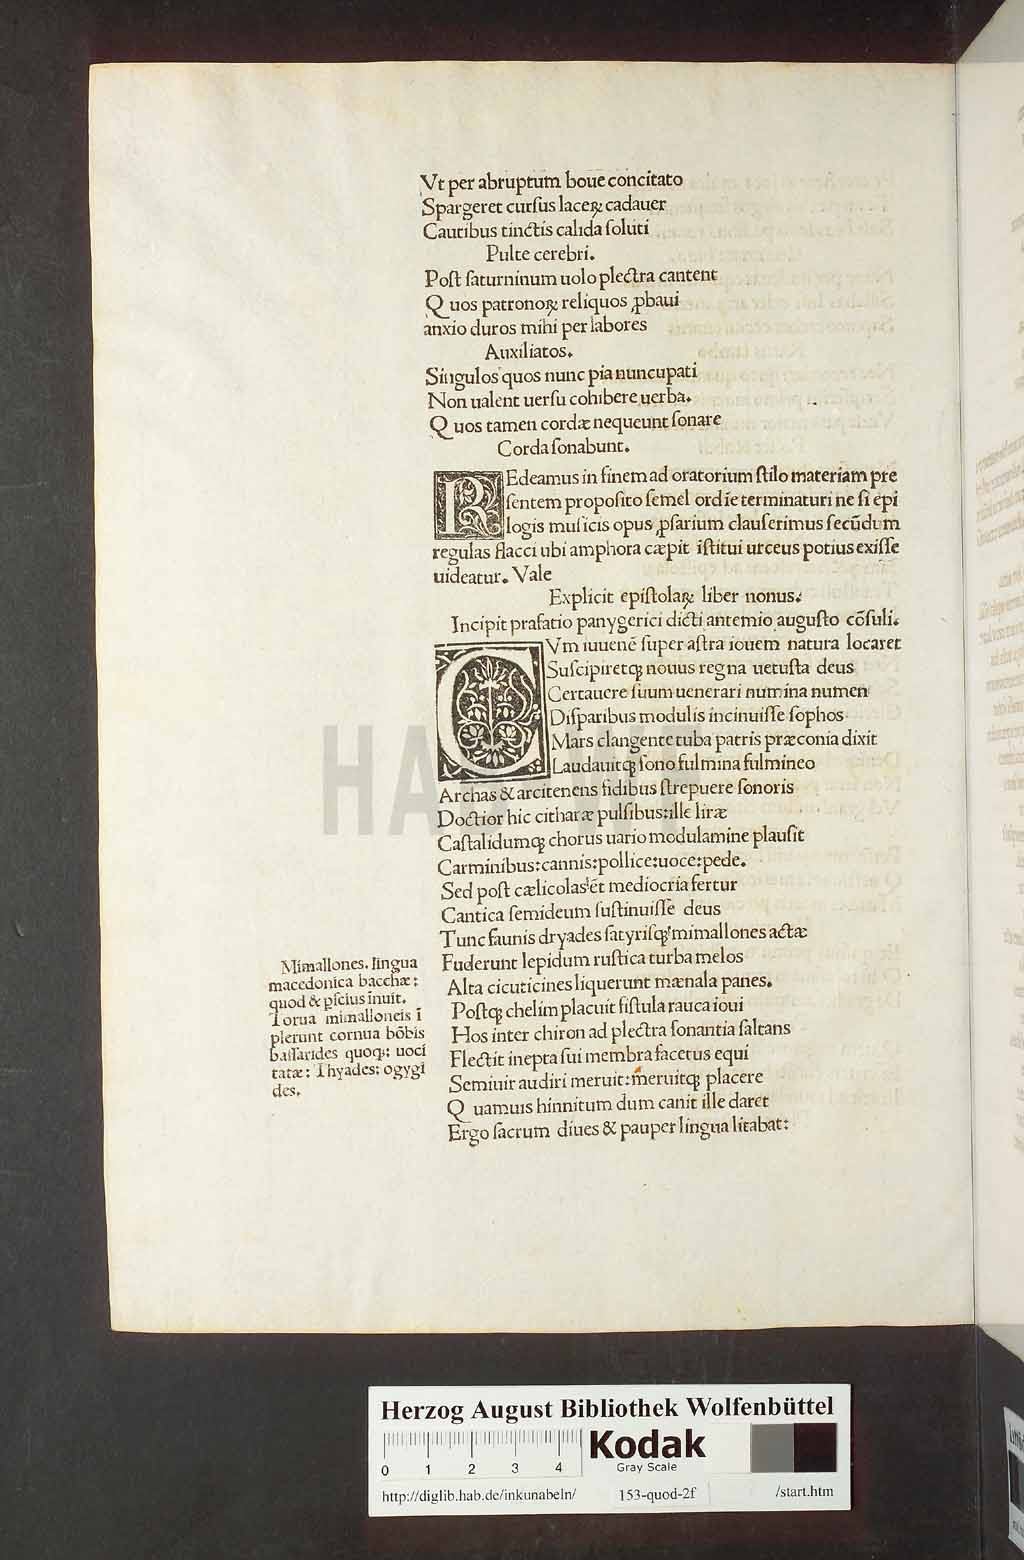 Vt per abruptum boue concitato
Spargeret cursus laceꝝ cadauer
Cautibus tinctis calida soluti
Pulte cerebri.
Post saturninum uolo plectra cantent
Quos patronoꝝ reliquos ꝓbaui
anxio duros mihi per labores
Auxiliatos.
Singulos quos nunc pia nuncupati
Non ualent uersu cohibere uerba.
Quos tamen cordæ nequeunt sonare
Corda sonabunt.
REdeamus in finem ad oratorium stilo materiam pre
sentem proposito semel ordīe terminaturi ne si epi
logis musicis opus ꝓsarium clauserimus secūdum
regulas flacci ubi amphora cæpit istitui urceus potius exisse
uideatur. Vale
Explicit epistolaꝝ liber nonus:
Incipit prafatio panygerici dicti antemio augusto cōsuli.
CVm iuuenē super astra iouem natura locaret
Susciperetqꝫ nouus regna uetusta deus
Certauere suum uenerari numina numen
Disparibus modulis incinuisse sophos
Mars clangente tuba patris præconia dixit
Laudauitqꝫ sono fulmina fulmineo
Archas & arcitenens fidibus strepuere sonoris
Doctior hic citharæ pulsibus: ille liræ
Castalidumqꝫ chorus uario modulamine plausit
Carminibus: cannis: pollice: uoce: pede.
Sed post cælicolas ēt mediocria fertur
Cantica semideum sustinuisse deus
Tunc faunis dryades satyrisqꝫ mimallones actæ
Fuderunt lepidum rustica turba melos
Alta cicuticines liquerunt mænala panes.
Postqꝫ chelim placuit fistula rauca ioui
Hos inter chiron ad plectra sonantia saltans
Flectit inepta sui membra facetus equi
Semiuir audiri meruit: meruitqꝫ placere
Quamuis hinnitum dum canit ille daret
Ergo sacrum diues & pauper lingua litabat:
Mimallones. lingua
macedonica bacchæ:
quod & ꝑsius īnuit.
Torua mimalloneis ī
plerunt cornua bōbis
bassarides quoqꝫ: uoci
tatæ: Thyades: ogygi
des.
HAB
Herzog August Bibliothek Wolfenbüttel
0 1 2 3 4
Kodak
Gray Scale
http://diglib.hab.de/inkunabeln/ 153-quod-2f /start.htm